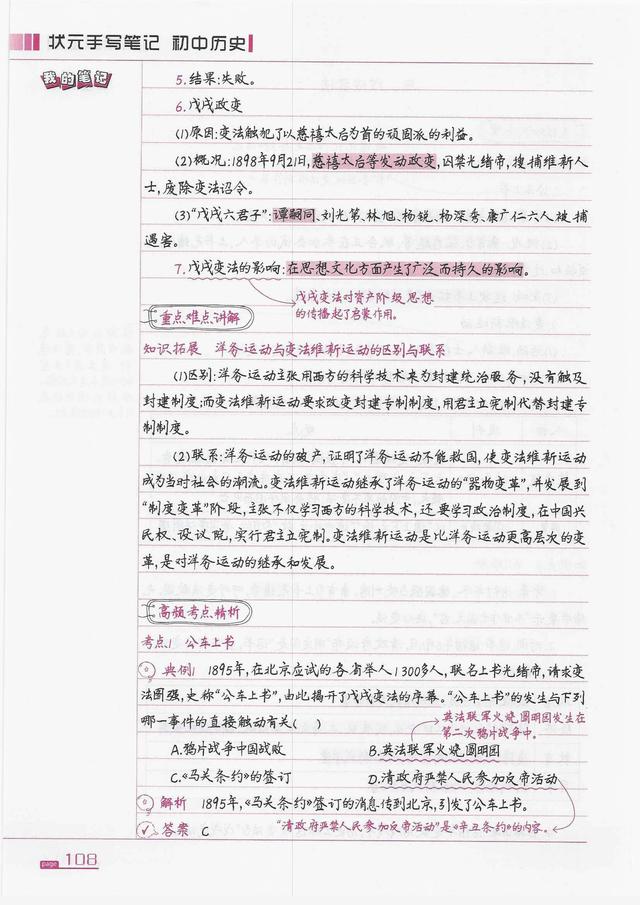 状元手写笔记 初中历史
我的笔记
5.结果:失败。
6.戊戌政变
(1)原因:变法触犯了以慈禧太后为首的顽固派的利益。
(2)概况:1898年9月21日,慈禧太后等发动政变,囚禁光绪帝,搜捕维新人
士,废除变法诏令。
(3)“戊戌六君子”:谭嗣同、刘光第、林旭、杨锐、杨深秀、康广仁六人被捕
遇害。
7.戊戌变法的影响:在思想文化方面产生了广泛而持久的影响。
戊戌变法对资产阶级思想
的传播起了启蒙作用。
重点难点讲解
知识拓展 洋务运动与变法维新运动的区别与联系
(1)区别:洋务运动主张用西方的科学技术来为封建统治服务,没有触及
封建制度;而变法维新运动要求改变封建专制制度,用君主立宪制代替封建专
制制度。
(2)联系:洋务运动的破产,证明了洋务运动不能救国,使变法维新运动
成为当时社会的潮流。变法维新运动继承了洋务运动的“器物变革”,并发展到
“制度变革”阶段,主张不仅学习西方的科学技术,还要学习政治制度,在中国兴
民权、设议院,实行君主立宪制。变法维新运动是比洋务运动更高层次的变
革,是对洋务运动的继承和发展。
高频考点精析
考点1 公车上书
典例1 1895年,在北京应试的各省举人1300多人,联名上书光绪帝,请求变
法图强,史称“公车上书”,由此揭开了戊戌变法的序幕。“公车上书”的发生与下列
哪一事件的直接触动有关( )
英法联军火烧圆明园发生在
第二次鸦片战争中。
A.鸦片战争中国战败 B.英法联军火烧圆明园
C.《马关条约》的签订 D.清政府严禁人民参加反帝活动
解析 1895年,《马关条约》签订的消息传到北京,引发了公车上书。
答案 C “清政府严禁人民参加反帝活动”是《辛丑条约》的内容。
page 108